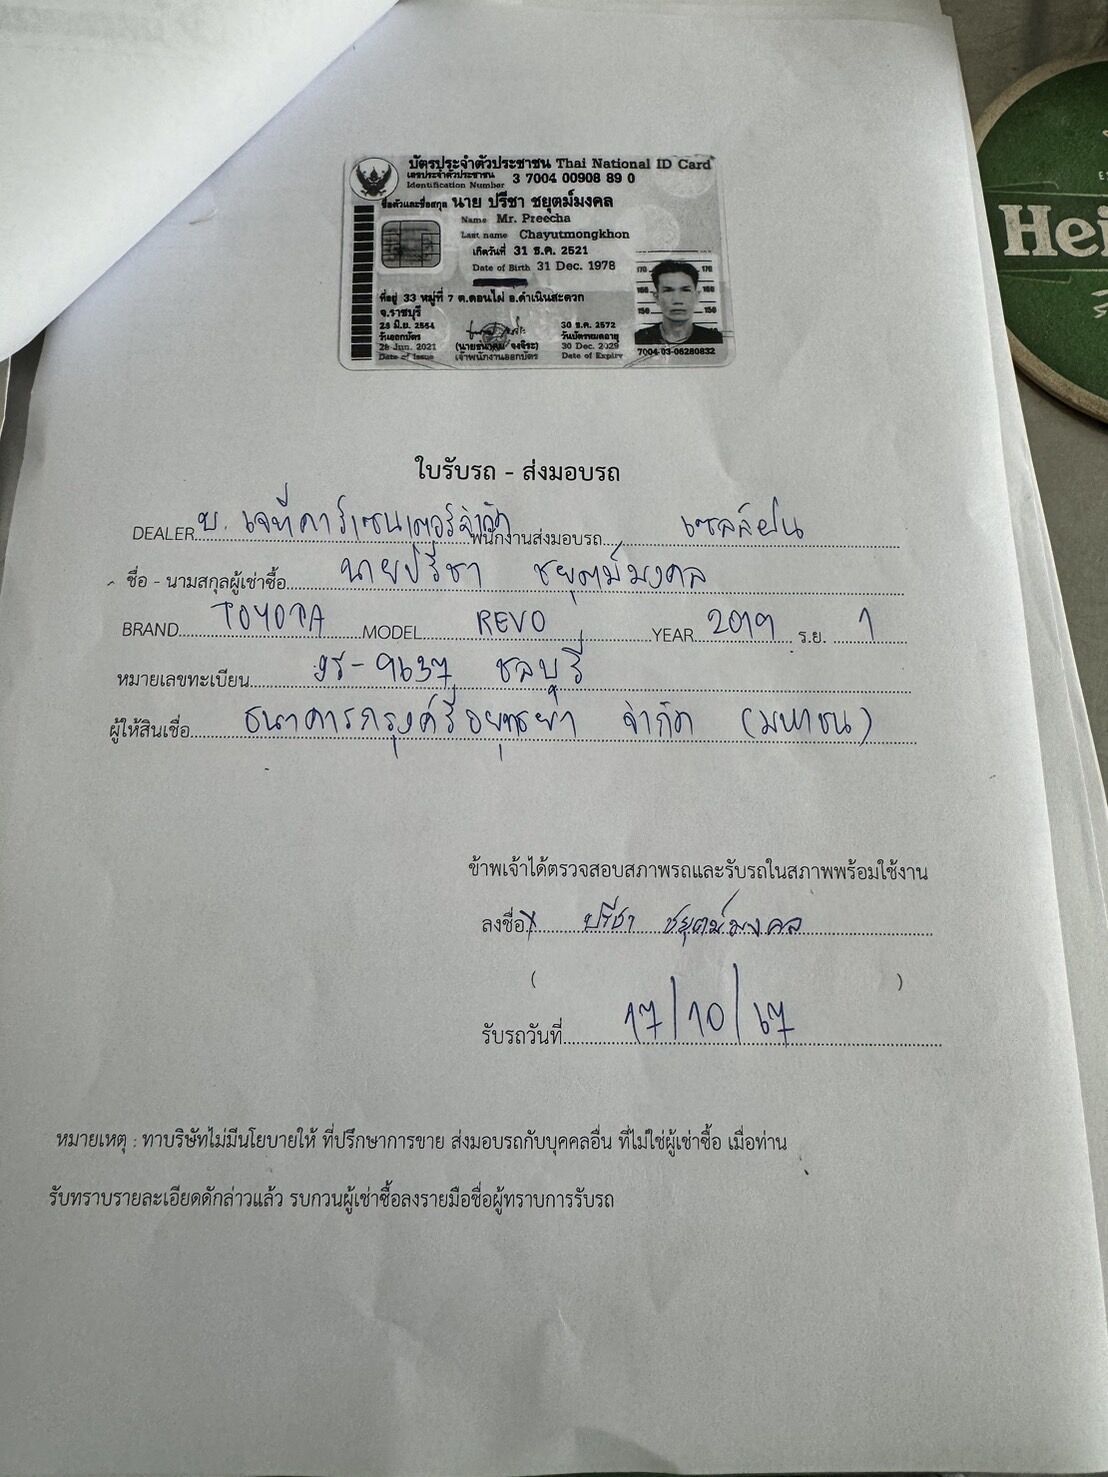 บัตรประจำตัวประชาชน Thai National ID Card
เลขประจำตัวประชาชน 3 7004 00908 89 0
Identification Number
ชื่อตัวและชื่อสกุล นาย ปรีชา ชยุตม์มงคล
Name Mr. Preecha
Last name Chayutmongkhon
เกิดวันที่ 31 ธ.ค. 2521
Date of Birth 31 Dec. 1978
ที่อยู่ 33 หมู่ที่ 7 ต.ดอนไผ่ อ.ดำเนินสะดวก
จ.ราชบุรี
28 มิ.ย. 2564
วันออกบัตร
28 Jun. 2021
Date of Issue
เจ้าพนักงานออกบัตร
30 ธ.ค. 2572
วันบัตรหมดอายุ
30 Dec. 2029
Date of Expiry
170 170
160 160
150 150
7004-03-06280832
Hei
ใบรับรถ - ส่งมอบรถ
DEALER บ. เจที คาร์เซนเตอร์ จำกัด พนักงานส่งมอบรถ
ชื่อ - นามสกุลผู้เช่าซื้อ นายปรีชา ชยุตม์มงคล
BRAND TOYOTA MODEL REVO YEAR 2019 ร.ย. 1
หมายเลขทะเบียน 9637 ชลบุรี
ผู้ให้สินเชื่อ ธนาคารกรุงศรีอยุทธยา จำกัด (มหาชน)
ข้าพเจ้าได้ตรวจสอบสภาพรถและรับรถในสภาพพร้อมใช้งาน
ลงชื่อ x ปรีชา ชยุตม์มงคล
( )
รับรถวันที่ 17/10/67
หมายเหตุ : ทาบริษัทไม่มีนโยบายให้ ที่ปรึกษาการขาย ส่งมอบรถกับบุคคลอื่น ที่ไม่ใช่ผู้เช่าซื้อ เมื่อท่าน
รับทราบรายละเอียดดักล่าวแล้ว รบกวนผู้เช่าซื้อลงรายมือชื่อผู้ทราบการรับรถ